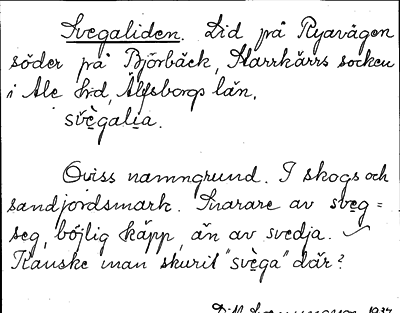 Svegaliden. Lid på Ryavägen
söder på Björbäck, Starrkärrs socken
i Ale hrd, Älfsborgs län.
svègalia.
Oviss namngrund. I skogs och
sandjordsmark. Snarare av sveg =
seg, böjlig käpp, än av svedja.
Kanske man skurit "svèga" där?
1934